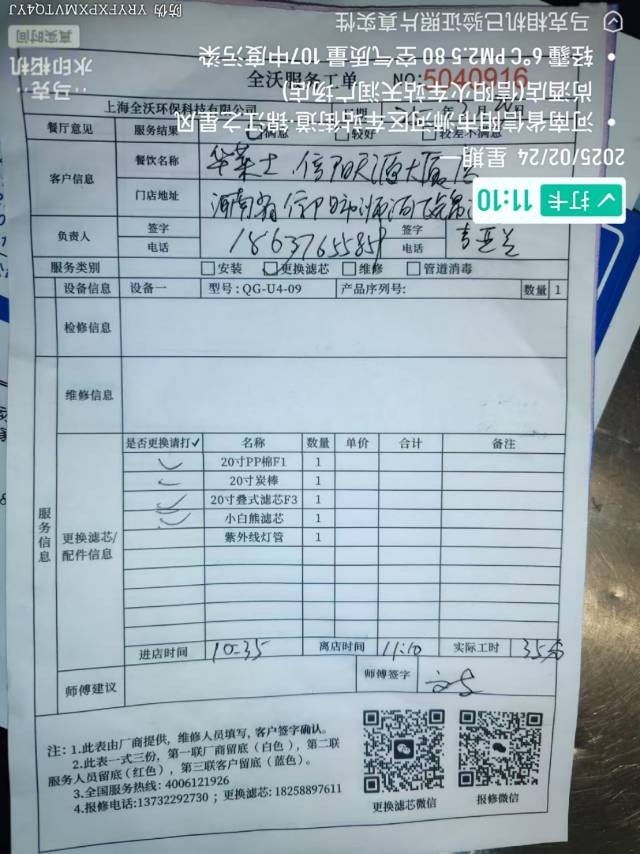 全沃服务工单
NO:5040916
上海全沃环保科技有限公司
餐厅意见 服务结果 满意 较好 较差不满意
客户信息
餐饮名称 华莱士
门店地址 河南省信阳市浉河
负责人 签字 电话 18637655859 签字 电话
服务类别 安装 更换滤芯 维修 管道消毒
设备信息 设备一 型号:QG-U4-09 产品序列号: 数量 1
检修信息
维修信息
服务信息
更换滤芯/配件信息
是否更换请打✓ 名称 数量 单价 合计 备注
✓ 20寸PP棉F1 1
✓ 20寸炭棒 1
✓ 20寸叠式滤芯F3 1
✓ 小白熊滤芯 1
紫外线灯管 1
进店时间 10-35 离店时间 11:10 实际工时 35分
师傅建议 师傅签字
注:1.此表由厂商提供,维修人员填写,客户签字确认。
2.此表一式三份,第一联厂商留底(白色),第二联
服务人员留底(红色),第三联客户留底(蓝色)。
3.全国服务热线:4006121926
4.报修电话:13732292730;更换滤芯:18258897611
更换滤芯微信 报修微信
打卡 11:10
2025/02/24 星期一
河南省信阳市浉河区车站街道·珠江之星风
尚酒店(信阳火车站天润广场店)
轻霾 6℃ PM2.5 80 空气质量 107中度污染
马克相机已验证照片真实性
马克
水印相机
真实时间
防伪 YRYFXPXMVTQ4YJ